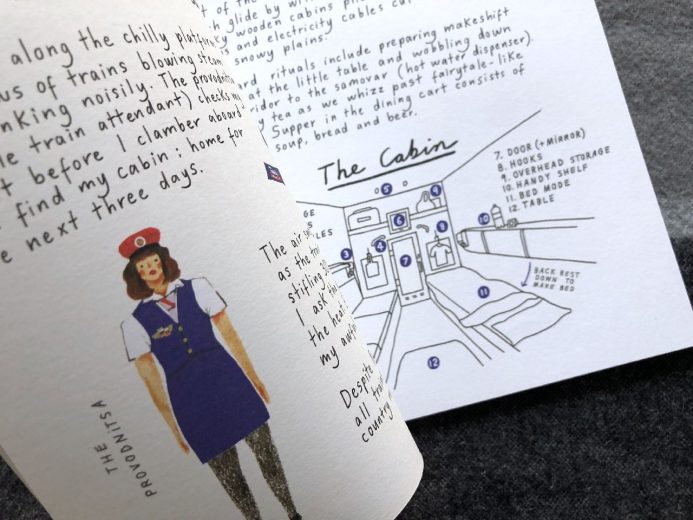 along the chilly platform
of trains blowing steam
noisily. The provodnitsa
train attendant) checks my
before I clamber aboard
find my cabin; home for
next three days.
THE
PROVODNITSA
The air
as the
stifling
I ask
the heat.
my
Despite
all
country
of the
glide by
wooden cabins
and electricity cables cut
snowy plains.
rituals include preparing makeshift
at the little table and wobbling down
to the samovar (hot water dispenser).
tea as we whizz past fairytale-like
Supper in the dining cart consists of
soup, bread and beer.
The Cabin
7. DOOR (+MIRROR)
8. HOOKS
9. OVERHEAD STORAGE
10. HANDY SHELF
11. BED MODE
12. TABLE
5
9
6
10
3
4
8
7
BACK REST
DOWN TO
MAKE BED
11
12